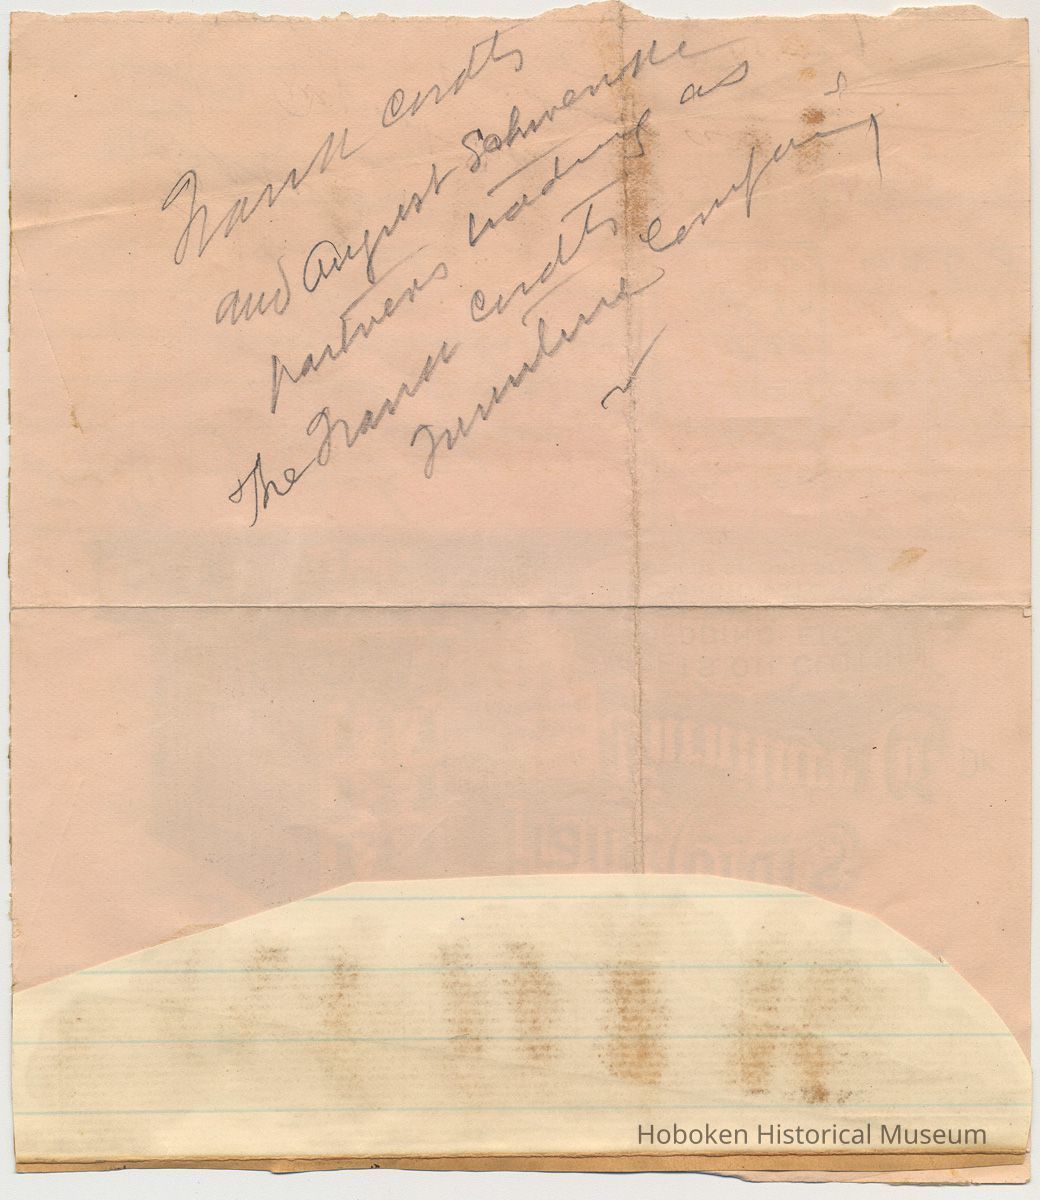 Frank Cordts
and August Schwenske
partners trading as
The Frank Cordts
Furniture Company
Hoboken Historical Museum